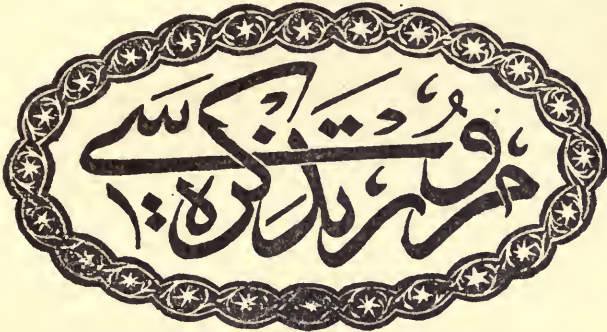 مرور تذكره سی